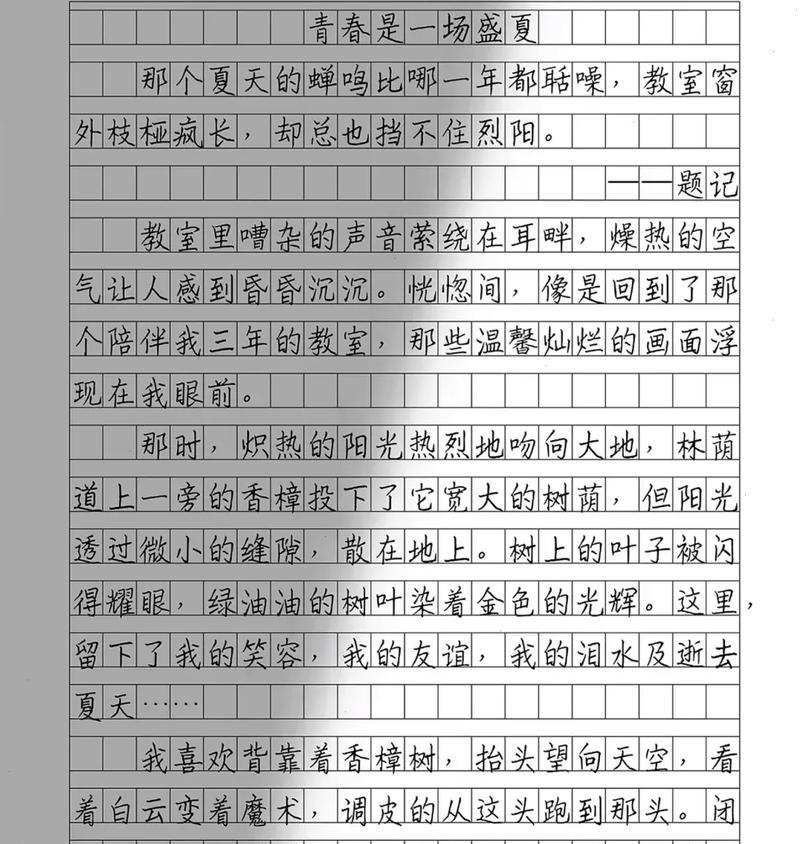 青春是一场盛夏
那个夏天的蝉鸣比哪一年都聒噪，教室窗
外枝桠疯长，却总也挡不住烈阳。
——题记
教室里嘈杂的声音萦绕在耳畔，燥热的空
气让人感到昏昏沉沉。恍惚间，像是回到了那
个陪伴我三年的教室，那些温馨灿烂的画面浮
现在我眼前。
那时，炽热的阳光热烈地吻向大地，林荫
道上一旁的香樟投下了它宽大的树荫，但阳光
透过微小的缝隙，散在地上。树上的叶子被闪
得耀眼，绿油油的树叶染着金色的光辉。这里，
留下了我的笑容，我的友谊，我的泪水及逝去
夏天……
我喜欢背靠着香樟树，抬头望向天空，看
着白云变着魔术，调皮的从这头跑到那头。闭